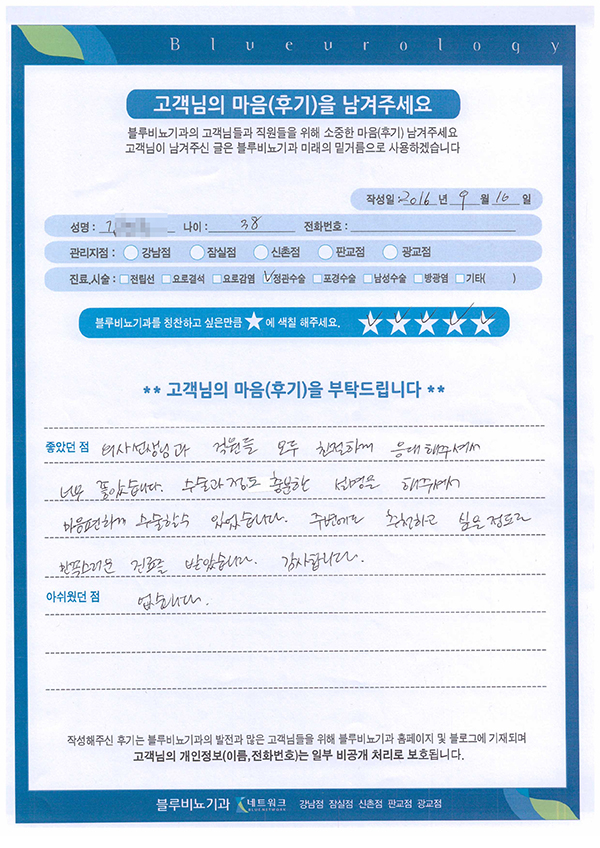 Blueurology
고객님의 마음(후기)을 남겨주세요
블루비뇨기과의 고객님들과 직원들을 위해 소중한 마음(후기) 남겨주세요
고객님이 남겨주신 글은 블루비뇨기과 미래의 밑거름으로 사용하겠습니다
작성일 : 2016 년 9 월 10 일
성명 : 나이 : 38 전화번호 :
관리지점 : 강남점 잠실점 신촌점 판교점 광교점
진료,시술 : 전립선 요로결석 요로감염 정관수술 포경수술 남성수술 방광염 기타( )
블루비뇨기과를 칭찬하고 싶은만큼 ★에 색칠 해주세요.
** 고객님의 마음(후기)을 부탁드립니다 **
좋았던 점 의사선생님과 직원들 모두 친절하게 응대해주셔서
너무 좋았습니다. 수술과정도 충분한 설명을 해주셔서
마음편하게 수술할수 있었습니다. 주변에도 추천하고 싶을 정도로
만족스러운 진료를 받았습니다. 감사합니다.
아쉬웠던 점 없습니다.
작성해주신 후기는 블루비뇨기과의 발전과 많은 고객님들을 위해 블루비뇨기과 홈페이지 및 블로그에 기재되며
고객님의 개인정보(이름,전화번호)는 일부 비공개 처리로 보호됩니다.
블루비뇨기과 네트워크 BLUE NETWORK 강남점 잠실점 신촌점 판교점 광교점